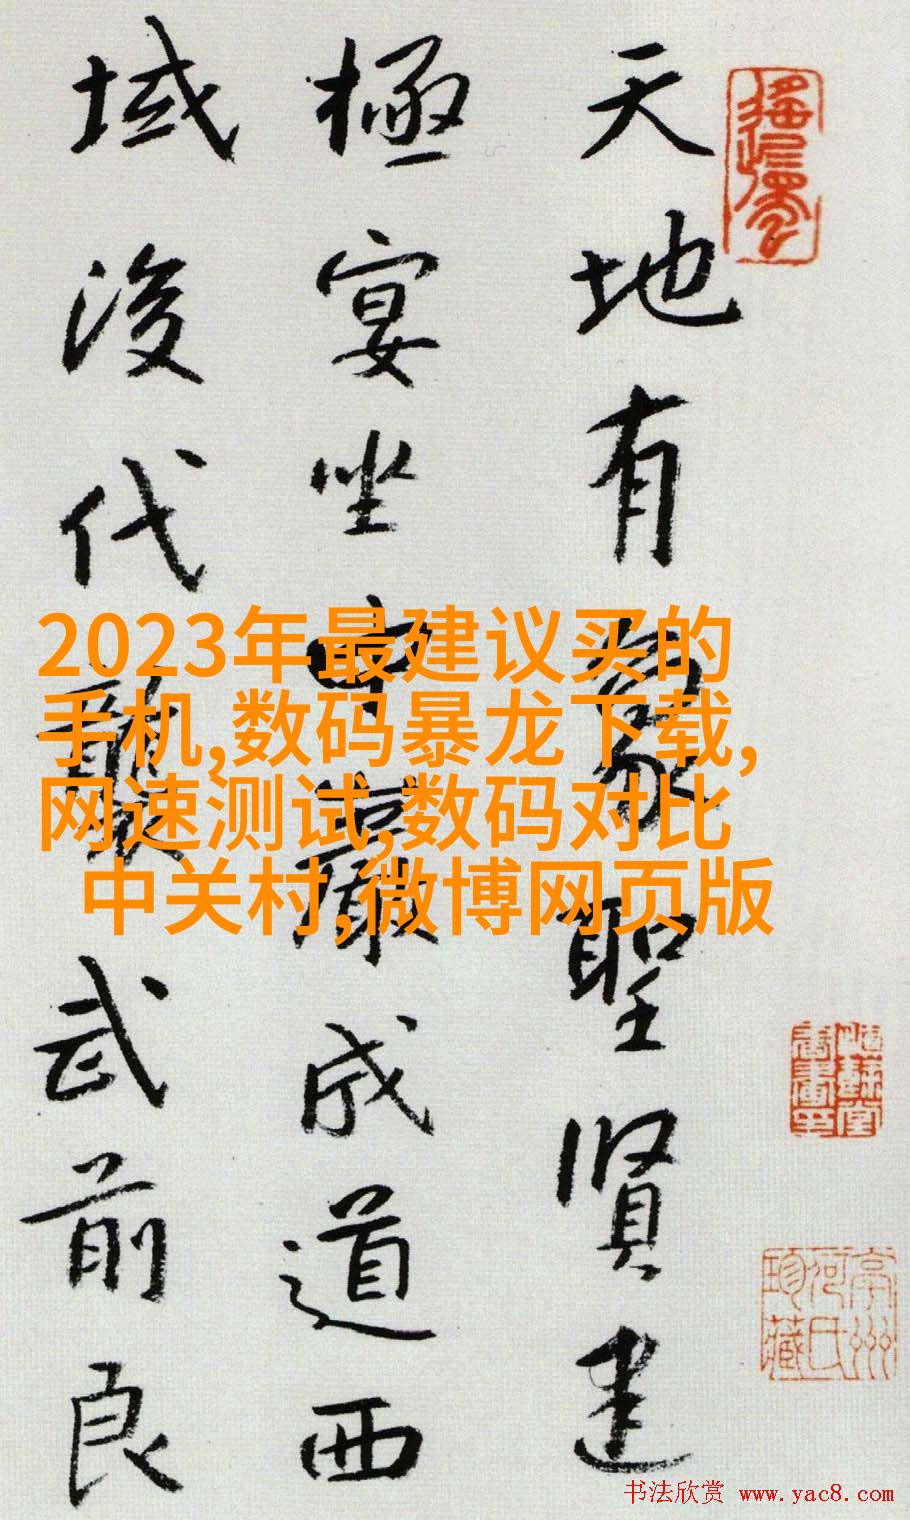 天地有象聖賢建
極宴坐中成道西
域後代襲武前良
2023年最建议买的
手机,数码暴龙下载,
网速测试,数码对比
中关村,微博网页版
珍藏
书法欣赏 www.yac8.com